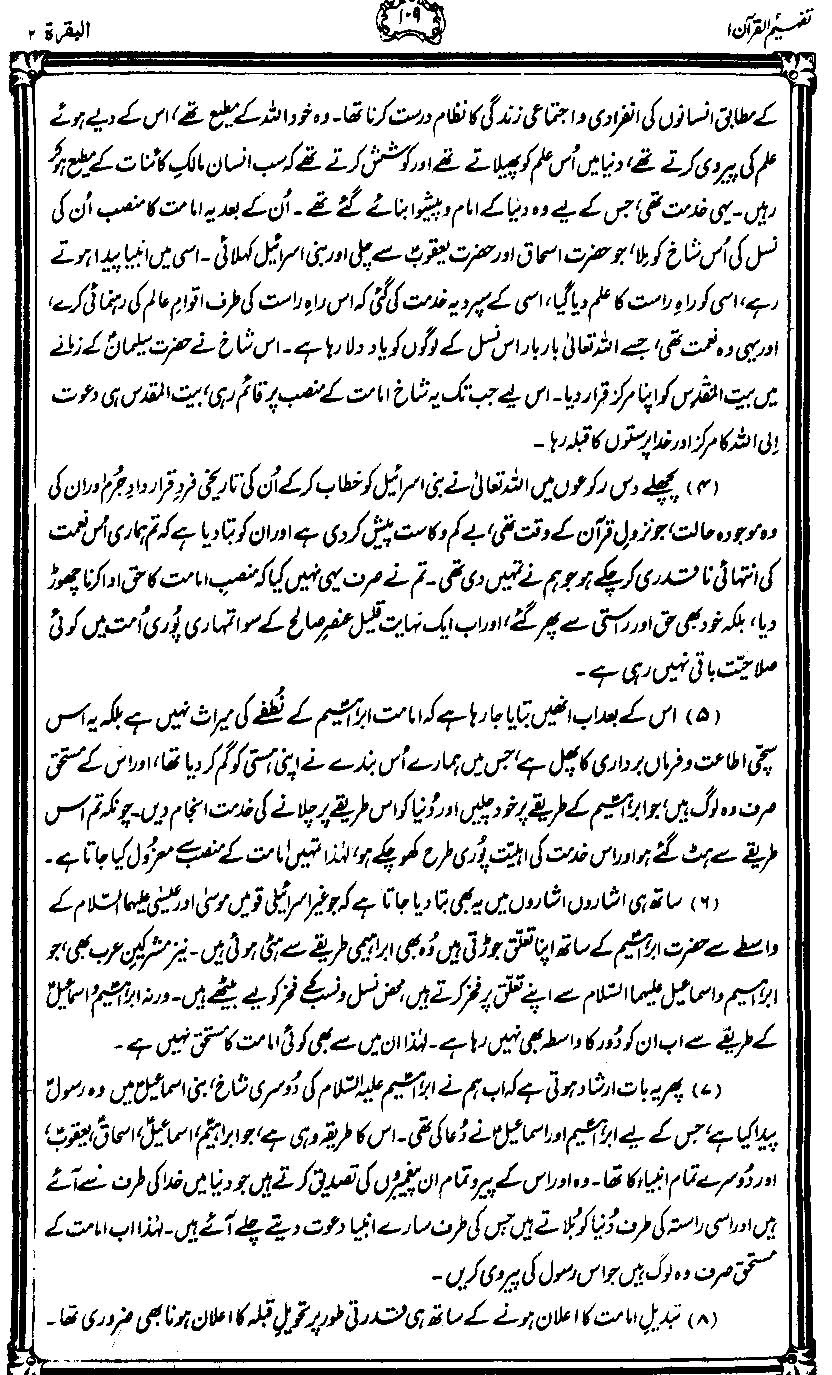 تفہیم القرآن ۱
۱۰۹
البقرۃ ۲
کے مطابق انسانوں کی انفرادی و اجتماعی زندگی کا نظام درست کرنا تھا۔ وہ خود اللہ کے مطیع تھے، اس کے دیے ہوئے
علم کی پیروی کرتے تھے، دنیا میں اُس علم کو پھیلاتے تھے اور کوشش کرتے تھے کہ سب انسان مالکِ کائنات کے مطیع ہو کر
رہیں۔ یہی خدمت تھی، جس کے لیے وہ دنیا کے امام و پیشوا بنائے گئے تھے۔ اُن کے بعد یہ امامت کا منصب اُن کی
نسل کی اُس شاخ کو ملا، جو حضرت اسحاق اور حضرت یعقوبؑ سے چلی اور بنی اسرائیل کہلائی۔ اسی میں انبیا پیدا ہوتے
رہے، اسی کو راہِ راست کا علم دیا گیا، اسی کے سپرد یہ خدمت کی گئی کہ اس راہِ راست کی طرف اقوامِ عالم کی رہنمائی کرے،
اور یہی وہ نعمت تھی، جسے اللہ تعالیٰ بار بار اس نسل کے لوگوں کو یاد دلا رہا ہے۔ اس شاخ نے حضرت سلیمانؑ کے زمانے
میں بیت المَقْدِس کو اپنا مرکز قرار دیا۔ اس لیے جب تک یہ شاخ امامت کے منصب پر قائم رہی، بیت المقدس ہی دعوت
اِلی اللہ کا مرکز اور خدا پرستوں کا قبلہ رہا۔
(۴) پچھلے دس رکوعوں میں اللہ تعالیٰ نے بنی اسرائیل کو خطاب کر کے اُن کی تاریخی فردِ قرار دادِ جُرم اور ان کی
وہ موجودہ حالت، جو نزولِ قرآن کے وقت تھی، بے کم و کاست پیش کر دی ہے اور ان کو بتا دیا ہے کہ تم ہماری اُس نعمت
کی انتہائی ناقدری کر چکے ہو جو ہم نے تمہیں دی تھی۔ تم نے صرف یہی نہیں کیا کہ منصبِ امامت کا حق ادا کرنا چھوڑ
دیا، بلکہ خود بھی حق اور راستی سے پھر گئے، اور اب ایک نہایت قلیل عنصرِ صالح کے سوا تمہاری پُوری اُمت میں کوئی
صلاحیّت باقی نہیں رہی ہے۔
(۵) اس کے بعد اب انھیں بتایا جا رہا ہے کہ امامت ابراہیمؑ کے نُطفے کی میراث نہیں ہے بلکہ یہ اس
سچّی اطاعت و فرماں برداری کا پھل ہے، جس میں ہمارے اُس بندے نے اپنی ہستی کو گم کر دیا تھا، اور اس کے مستحق
صرف وہ لوگ ہیں، جو ابراہیمؑ کے طریقے پر خود چلیں اور دُنیا کو اس طریقے پر چلانے کی خدمت انجام دیں۔ چونکہ تم اس
طریقے سے ہٹ گئے ہو اور اس خدمت کی اہلیّت پُوری طرح کھو چکے ہو، لہٰذا تمہیں امامت کے منصب سے معزُول کیا جاتا ہے۔
(۶) ساتھ ہی اشاروں اشاروں میں یہ بھی بتا دیا جاتا ہے کہ جو غیر اسرائیلی قومیں موسیٰ اور عیسیٰ علیہما السّلام کے
واسطے سے حضرت ابراہیمؑ کے ساتھ اپنا تعلّق جوڑتی ہیں وُہ بھی ابراہیمی طریقے سے ہٹی ہوئی ہیں۔ نیز مشرکینِ عرب بھی، جو
ابراہیم و اسماعیل علیہما السّلام سے اپنے تعلّق پر فخر کرتے ہیں، محض نسل و نسب کے فخر کو لیے بیٹھے ہیں۔ ورنہ ابراہیمؑ و اسماعیلؑ
کے طریقے سے اب ان کو دُور کا واسطہ بھی نہیں رہا ہے۔ لہٰذا ان میں سے بھی کوئی امامت کا مستحق نہیں ہے۔
(۷) پھر یہ بات ارشاد ہوتی ہے کہ اب ہم نے ابراہیم علیہ السّلام کی دُوسری شاخ، بنی اسماعیلؑ میں وہ رسولؐ
پیدا کیا ہے، جس کے لیے ابراہیمؑ اور اسماعیلؑ نے دُعا کی تھی۔ اس کا طریقہ وہی ہے، جو ابراہیمؑ، اسماعیلؑ، اسحاقؑ، یعقوبؑ،
اور دُوسرے تمام انبیاء کا تھا۔ وہ اور اس کے پیرو تمام ان پیغمبروں کی تصدیق کرتے ہیں جو دنیا میں خدا کی طرف سے آئے
ہیں اور اسی راستہ کی طرف دُنیا کو بُلاتے ہیں جس کی طرف سارے انبیا دعوت دیتے چلے آئے ہیں۔ لہٰذا اب امامت کے
مستحق صرف وہ لوگ ہیں جو اس رسول کی پیروی کریں۔
(۸) تبدیلِ امامت کا اعلان ہونے کے ساتھ ہی قدرتی طور پر تحویلِ قبلہ کا اعلان ہونا بھی ضروری تھا۔